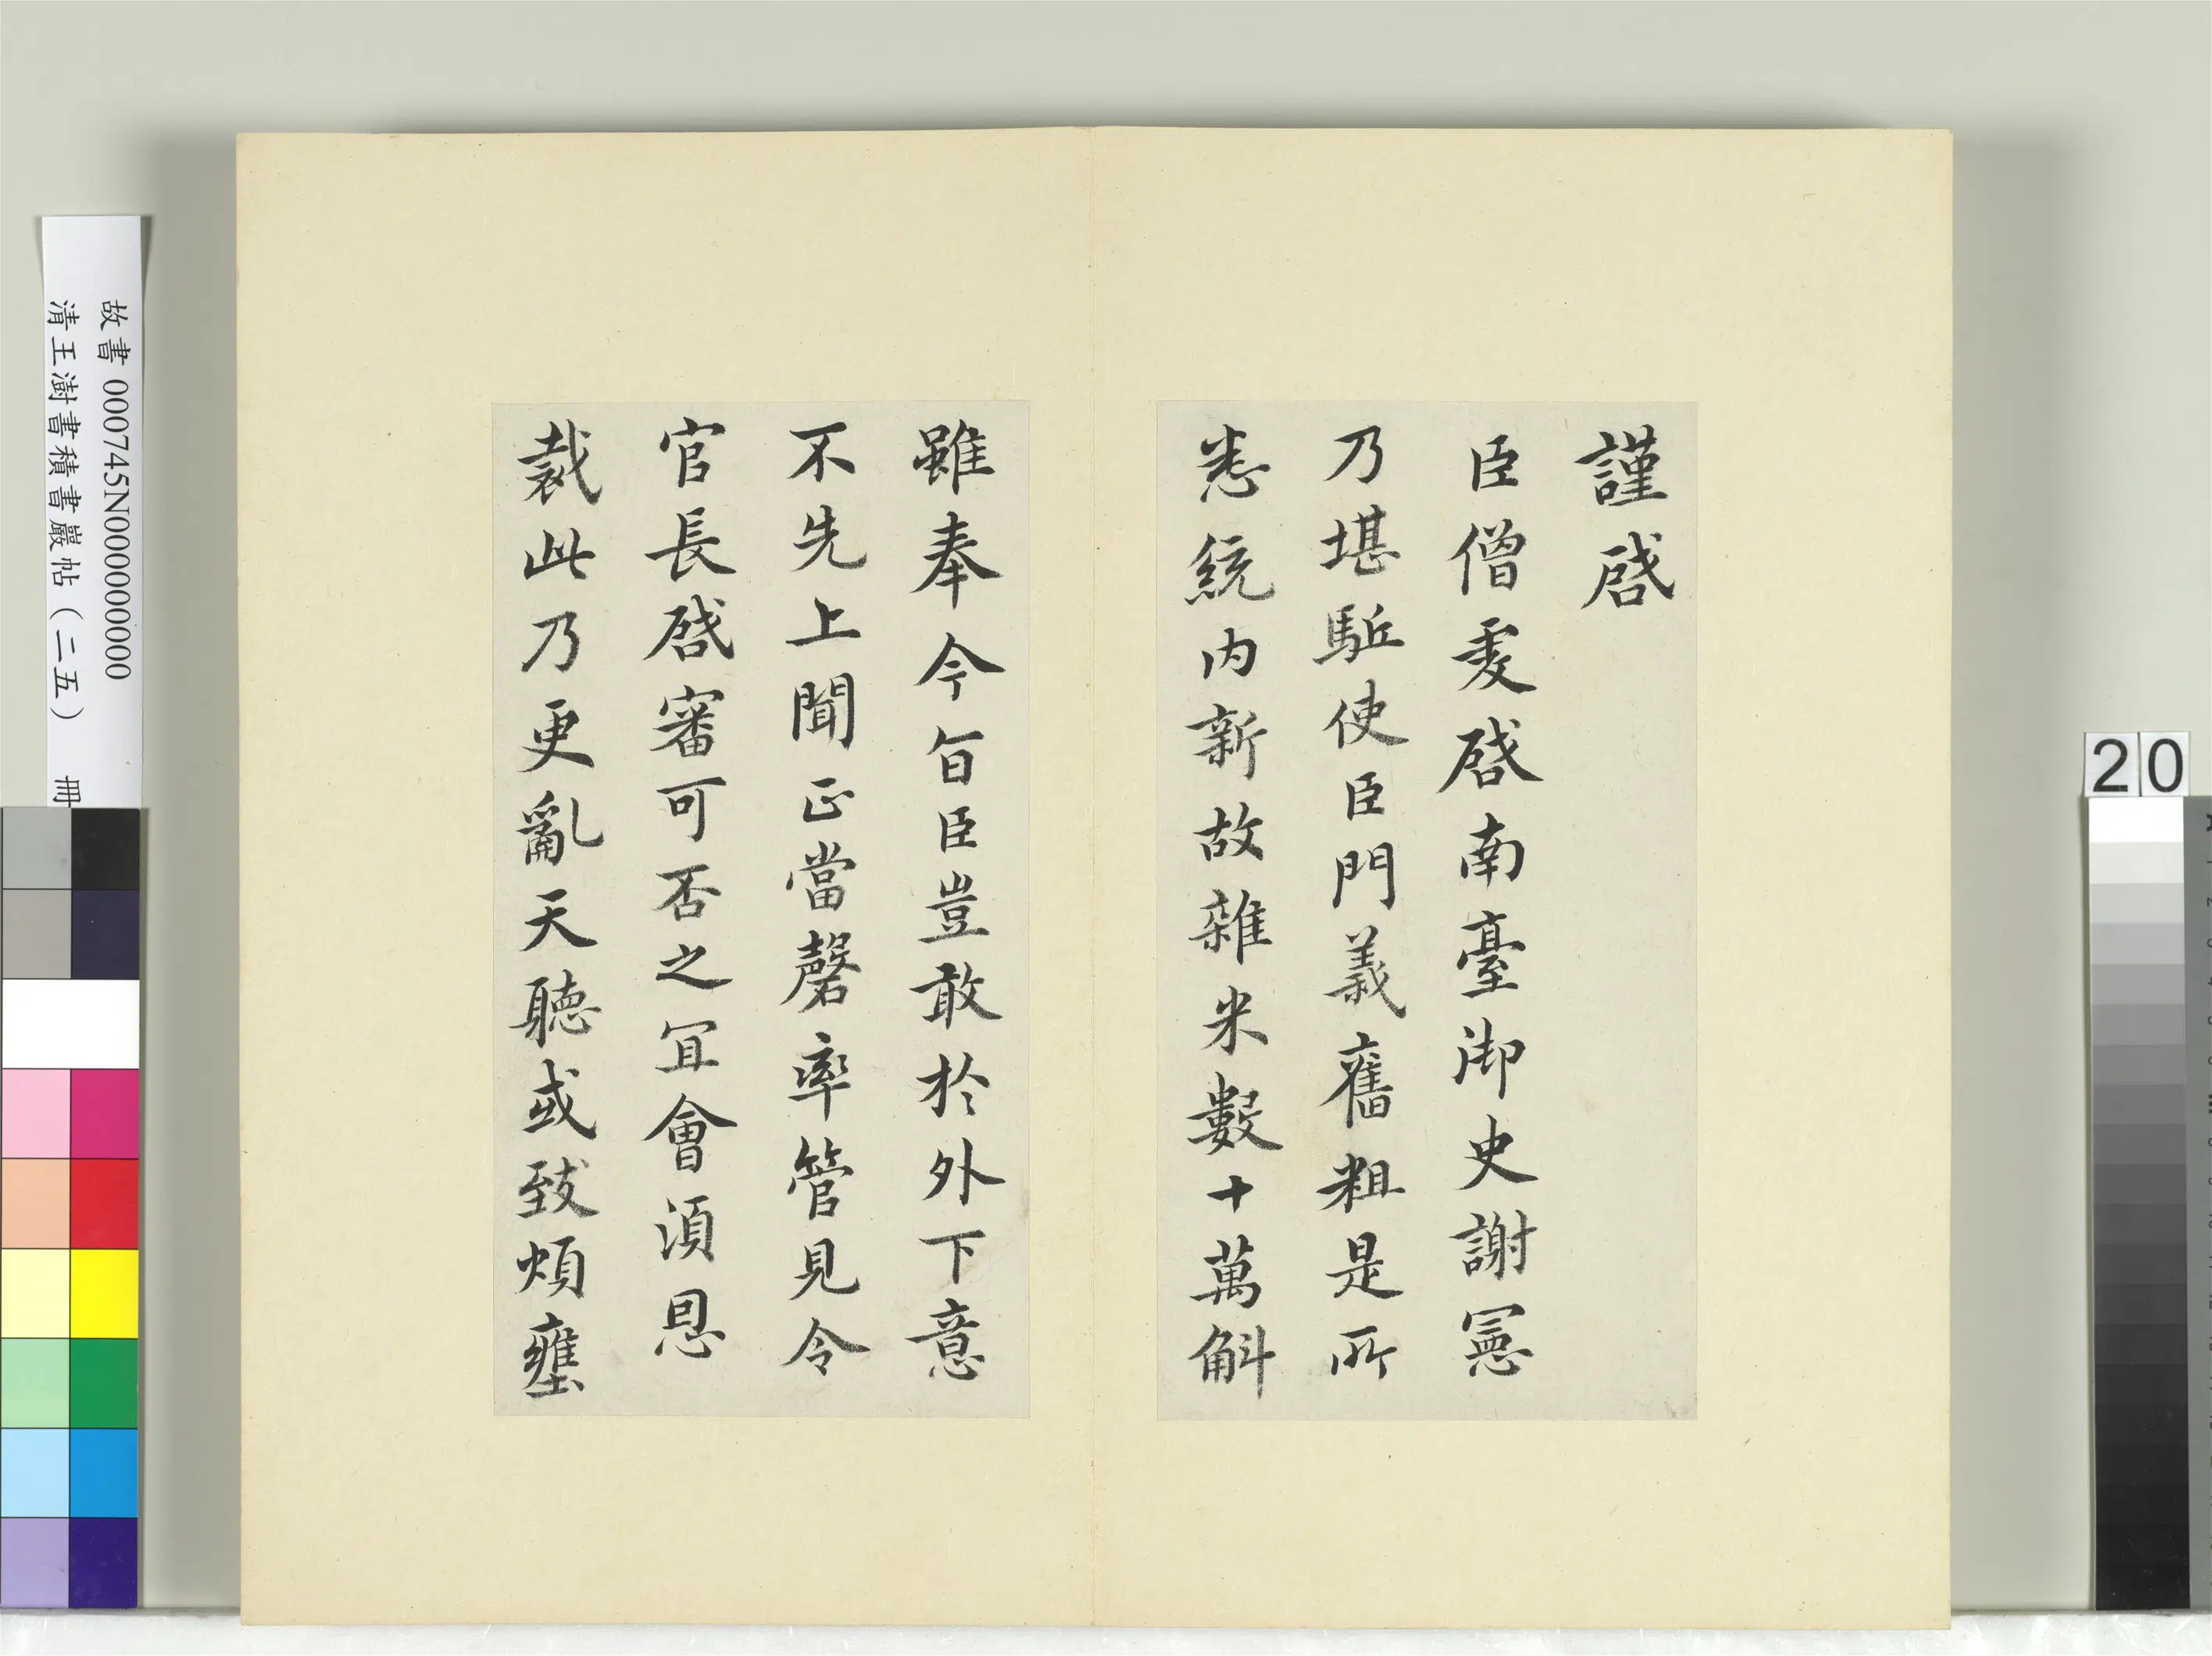 謹啓
臣僧虔啓南臺御史謝憲
乃堪驅使臣門義舊粗是所
悉統内新故雜米數十萬斛
雖奉令旨臣豈敢於外下意
不先上聞正當罄率管見令
官長啓審可否之宜會須恩
裁此乃更亂天聽或致煩壅
故書 000745N000000000
清王澍書積書巖帖（二五） 冊
20